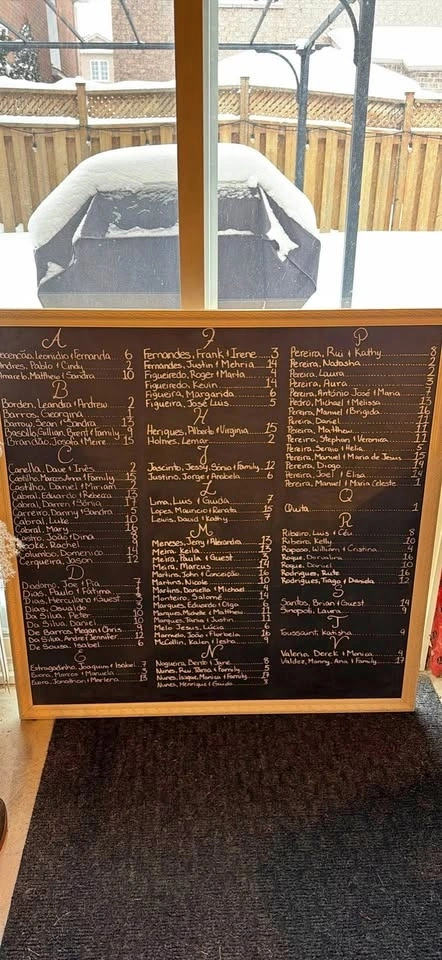 A
Leonidio & Fernanda 6
Andres, Pablo & Cindy 2
Amarelo, Matthew & Sandra 10
B
Borden, Leandra & Andrew 2
Barros, Georgina 1
Barrow, Sean & Sandra 13
Family
Brandão, & Meire 15
C
Canella, Dave & Inês 2
Castilho, Family 15
Castilho, Daniel & Miriam
Cabral, Eduardo & Rebecca
Cabral, Darren & Sónia
Cabreira, Danny & Sandy
Cabral, Luke
Cabral, Mary
Castro, João & Dina
Cooke, Rachel
Columbo, Domenico 14
Cerqueira, Jason 12
D
Dadamo, Joe & Pia
Dias, Paulo & Fatima
Dias, Herculano & Guest
Dias, Osvaldo
Da Silva, Peter
Da Silva, Daniel
De Barros, Megan & Chris
Da Silva, Andre & Jennifer 12
De Sousa, Isabel 6
E
Estragadinho, Joaquim & Isabel 7
Evora, Marcos & Manuela
Evora, Jonathan & Marlena
F
Fernandes, Frank & Irene 3
Fernandes, Justin & Mehria 14
Figueiredo, Roger & Marta 4
Figueiredo, Kevin 14
Figueira, Margarida 6
Figueira, José Luis 5
H
Heriques, Alberto & Virginia 15
Holmes, Lemar 2
J
Jascinto, Jessy, Sónia & Family 12
Justino, Jorge & Anabela 6
L
Lima, Luis & Guida 7
Lopes, Mauricio & Renata 15
Lewis, David & Kathy
M
Meneses, Jerry & Alexandra 13
Meira, Keila 13
Meira, Paula & Guest
Meira, Marcus 14
Martins, John & Conceição
Martins, Nicole
Martins, Daniella & Michael
Monteiro, Salomé 14
Marques, Eduardo & Olga
Marques, & Matthew 11
Marques, Tania & Justin 11
Melo, Jesus, Lúcia 6
João & Florbela 16
McCallin, Kalen & Iesha
N
Nogueira, Bento & Jane 8
Nunes, Rui, Tania & Family 5
Nunes, Isaque, Monica & Family 17
Nunes, Henrique & Guida 3
P
Pereira, Rui & Kathy 8
Pereira, Natasha 2
Pereira, Laura 2
Pereira, Aura 3
Pereira, António José & Maria 7
Pedro, Michael & Melissa
Pereira, Manuel & Brigida 16
Pereira, Daniel 11
Pereira, Matthew 11
Pereira, Stephan & Veronica 11
Pereira, Sergio & Helia 3
Pereira, Manuel & Maria de Jesus 15
Pereira, Diogo 14
Pereira, Joel & Elisa
Pereira, Manuel & Maria Celeste 1
Q
Quita 1
R
Ribeiro, Luis & Céu 8
Ribeiro, Kelly 10
Raposo, William & Cristina 4
Roque, 16
Roque, Daniel 10
Rodrigues, 16
Rodrigues, Tiago & Daniela 12
S
Santos, Brian & Guest 14
Sinopoli, Laura
T
Toussaint, Katisha 9
V
Valeria, Derek & Monica 4
Valdez, Manny, Ana & Family 17